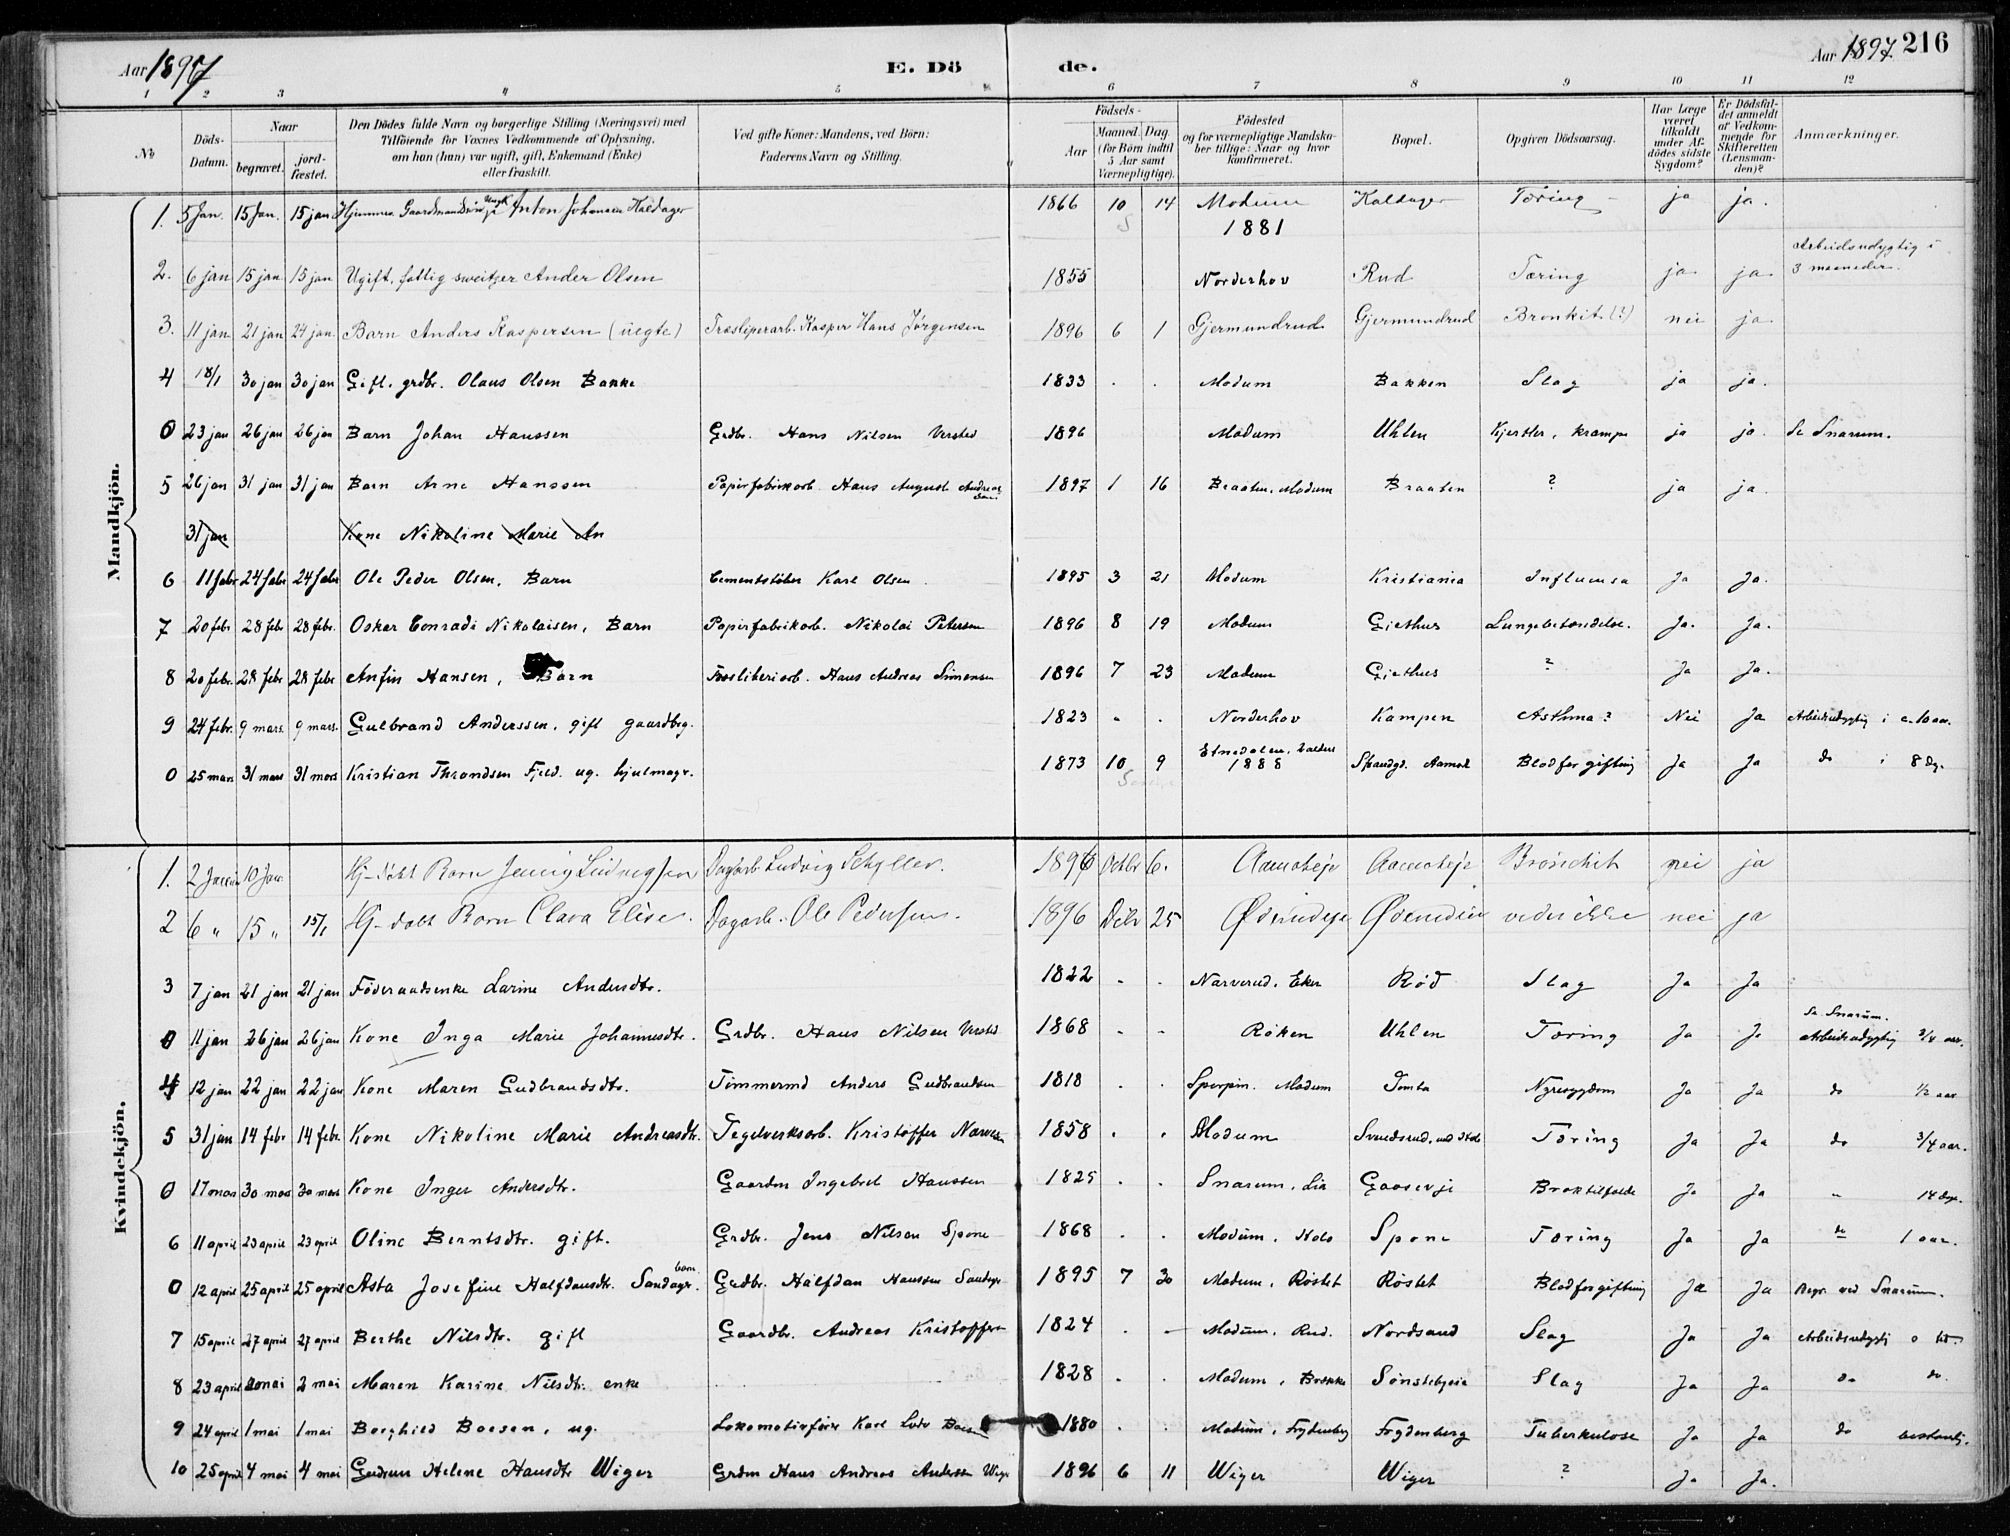 Aar 1897 E. Dö de. Aar 1897 216
1 2 3 4 5 6 7 8 9 10 11 12
No
Döds-Datum.
Naar
begravet.
jord-fæstet.
Den Dödes fulde Navn og borgerlige Stilling (Næringsvei) med
Tilföiende for Voxnes Vedkommende af Oplysning,
om han (hun) var ugift, gift, Enkemand (Enke)
eller fraskilt.
Ved gifte Koner: Mandens, ved Börn:
Faderens Navn og Stilling.
Födsels-
Aar
Maaned. Dag
(for Börn indtil
5 Aar samt
Værnepligtige).
Födested
og for værnepligtige Mandska-
ber tillige: Naar og hvor
konfirmeret.
Bopæl.
Opgiven Dödsaarsag.
Har Læge
været
tilkaldt
under Af-
dödes sidste
Sygdom?
Er Dödsfal-
det anmeldt
af Vedkom-
mende for
Skifteretten
(Lensman-
den)?
Anmærkninger.
Mandkjön.
1. 5 Jan. 15 Jan. 15 jan Anton Johansen Kaldager 1866 10 14 Modum Kaldager Tæring ja ja.
1881
2. 6 jan 15 jan 15 jan Ugift, fattig sweitzer Ander Olsen 1855 Norderhov Rud Tæring ja ja Arbeidsudygtig i
3 maaneder.
3. 11 jan 21 jan 24 jan Barn Anders Kaspersen (uegte) Træsliperarb. Kasper Hans Jørgensen 1896 6 1 Gjermundrud Gjermundrud Bronkit (?) nei ja
4 18/1 30 jan 30 jan Gift. grdbr. Olaus Olsen Bakke 1833 . . Modum Bakken Slag ja ja.
0 23 jan 26 jan 26 jan Barn Johan Hanssen Grdbr. Hans Nilsen Versted 1896 Modum Uhlen Kjertler, krampe ja ja. Se Snarum.
5 26 jan 31 jan 31 jan Barn Arne Hanssen Papirfabrikarb. Hans August Andreassen 1897 1 16 Braaten, Modum Braaten ? ja ja.
31 jan Kone Nikoline Marie An
6 11 febr 24 febr 24 febr Ole Peder Olsen, Barn Cementstøber Karl Olsen 1895 3 21 Modum Kristiania Influensa Ja Ja.
7 20 febr. 28 febr 28 febr. Oskar Conradi Nikolaisen, Barn Papirfabrikarb. Nikolai Petersen 1896 8 19 Modum Giethus Lungebetændelse. Ja. Ja.
8 20 febr. 28 febr 28 febr Anfin Hansen, Barn Træsliberiarb. Hans Andreas Simensen 1896 7 23 Modum Giethus ? Ja Ja.
9 24 febr. 9 mars. 9 mars. Gulbrand Anderssen, gift gaardbrg. 1823 . . Norderhov Kampen Asthma? Nei Ja Arbeidsudygtig i c. 10 aar.
0 25 mars 31 mars 31 mars Kristian Throndsen Fjeld. ug. hjulmagr. 1873 10 9 Etnedalen, Valders 1888 Aamot Blodforgiftning Ja Ja do i 8 Dg.
Kvindekjön.
1. 2 10 Jan. Hj-døbt Barn Jenny Ludvigsen Dagarb. Ludvig 1896 Octbr 6. Aamoteje Aamoteje Bronchit nei ja
2 6 „ 15 „ 15/1 Hj-døbt Barn Clara Elise. Dagarb. Ole Pedersen. 1896 Decbr 25 vides ikke nei ja
3 7 jan 21 jan 21 jan Föderaadsenke Larine Andersdtr. 1822 . . Narverud, Eker Rød Slag Ja Ja
0 11 jan 26 jan 26 jan Kone Inga Marie Johannesdtr. Grdbr. Hans Nilsen Versted 1868 - - Røken Uhlen Tæring Ja Ja Se Snarum.
Arbeidsudygtig 3/4 aar.
4 12 jan 22 jan 22 jan Kone Maren Gudbrandsdtr. Tømmermd Anders Gudbrandsen 1818 . . Modum Tomta Nyresygdom Ja Ja do 1/2 aar
5 31 jan 14 febr 14 febr. Kone Nikoline Marie Andreasdtr. Tegelverksarb. Kristoffer Narvesen 1858 . . Modum Svendsrud, Tæring Ja Ja do 3/4 aar.
0 17 mars 30 mars 30 mars Kone Inger Andersdtr. Gaardm Ingebret Hanssen 1825 . . Snarum, Lia Gaasevje Broktilfælde Ja Ja „ 14 dge.
6 11 april 23 april 23 april Oline Berntsdtr. gift. Grdbr. Jens Nilsen Spone 1868 . . Modum, Hole Spone Tæring Ja Ja do 1 aar.
0 12 april 25 april 25 april Asta Josefine Halfdansdtr. Sandager. barn Grdbr. Halfdan Hanssen Sandager 1895 7 30 Modum, Røstet Røstet Blodforgiftning Ja Ja Begr. ved Snarum.
7 15 april 27 april 27 april Berthe Nilsdtr. gift Gaardbr. Andreas Kristoffersen 1824 . - Modum, Rud. Nordsand Slag Ja Ja Arbeidsudygtig o
8 23 april 2 mai 2 mai Maren Karine Nilsdtr. enke 1828 . . Modum, Brekke Sønstebyeie Slag Ja Ja do do.
9 24 april 1 mai 1 mai Borghild Boesen, ug. Lokomotivfører Karl Ludv Boesen 1880 . . Modum, Frydenberg Frydenberg Tuberkulose Ja Ja do bestandig.
10 25 april 4 mai 4 mai Gudrun Helene Hansdtr Wiger Grdm Hans Andreas Anderssen Wiger 1896 6 11 Wiger Wiger ? Ja Ja.